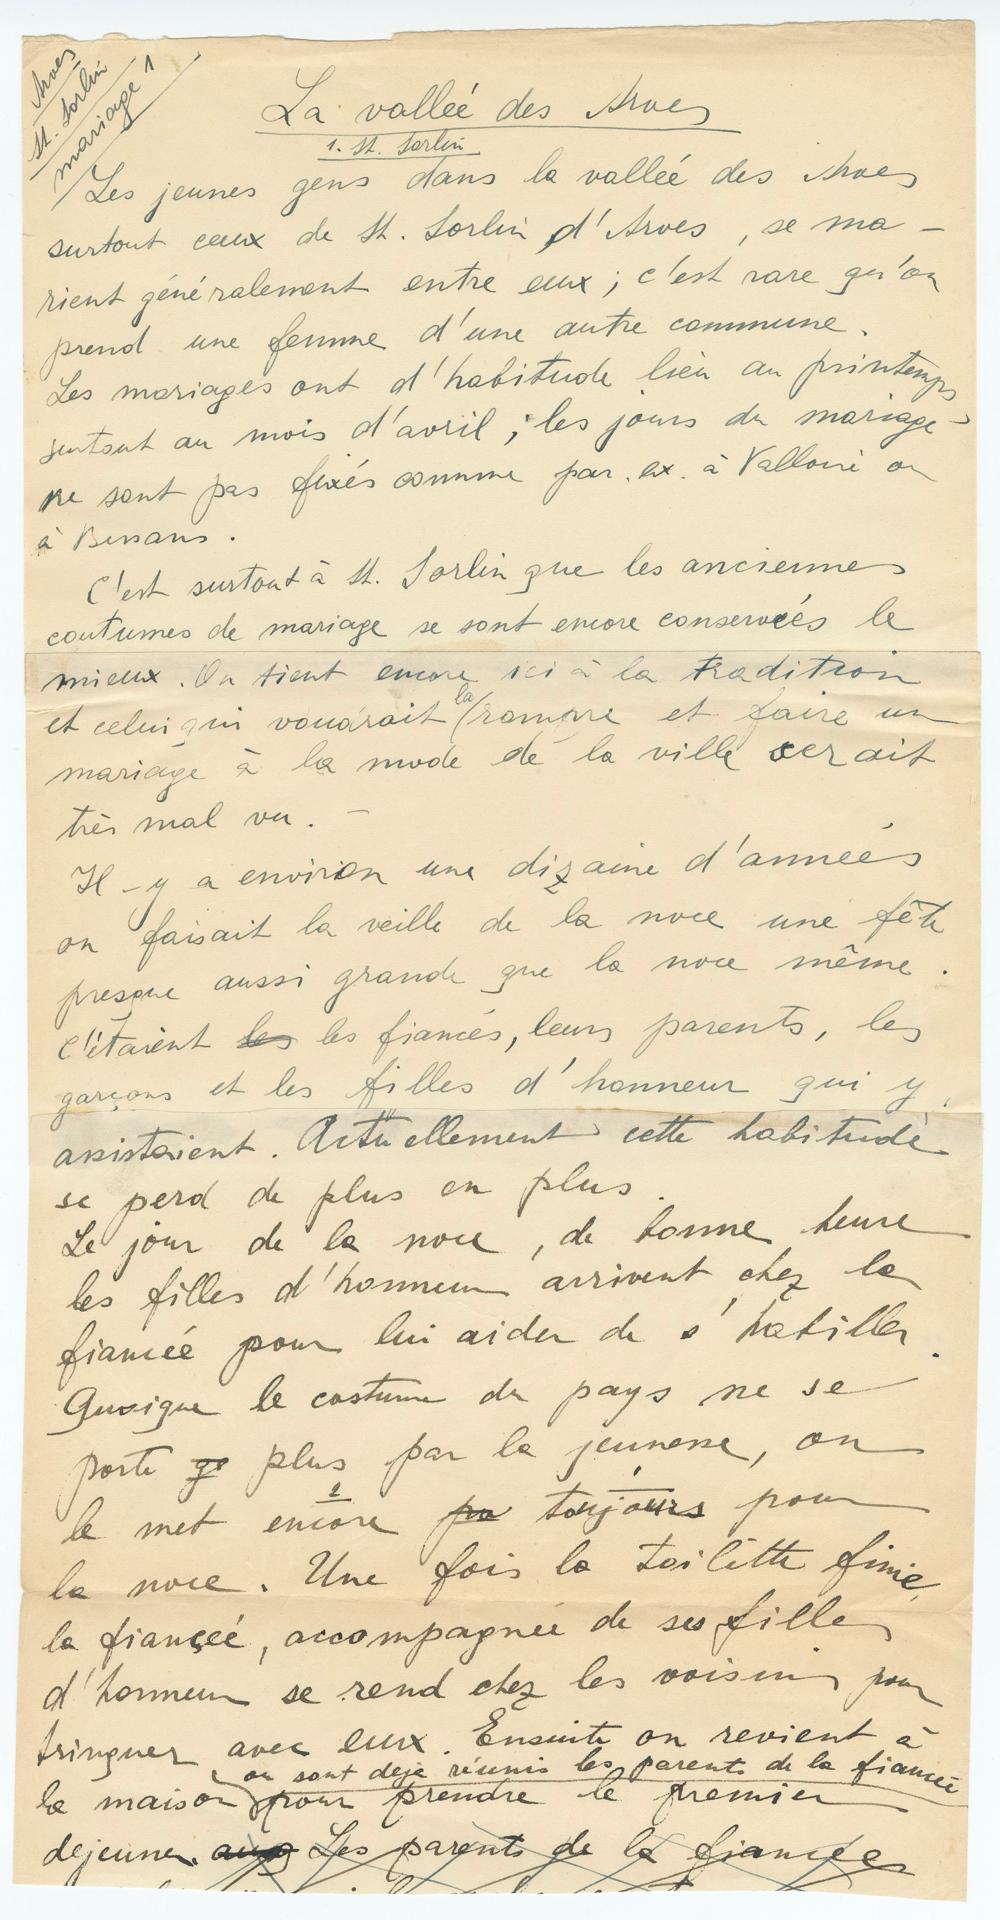 Arves
St. Sorlin
mariage 1
La vallée des Arves
1. St. Sorlin
Les jeunes gens dans la vallée des Arves
surtout ceux de St. Sorlin d'Arves, se ma-
rient généralement entre eux; c'est rare qu'on
prend une femme d'une autre commune.
Les mariages ont d'habitude lieu au printemps
surtout au mois d'avril; les jours du mariage
ne sont pas fixés comme par. ex. à Valloire ou
à Bessans.
C'est surtout à St. Sorlin que les anciennes
coutumes de mariage se sont encore conservées le
mieux. On tient encore ici à la tradition
et celui qui voudrait la rompre et faire un
mariage à la mode de la ville serait
très mal vu. -
Il-y a environ une dizaine d'années
on faisait la veille de la noce une fête
presque aussi grande que la noce même.
C'étaient les les fiancés, leurs parents, les
garçons et les filles d'honneur qui y
assistaient. Actuellement cette habitude
se perd de plus en plus.
Le jour de la noce, de bonne heure
les filles d'honneur arrivent chez la
fiancée pour lui aider de s'habiller.
Quoique le costume du pays ne se
porte plus par la jeunesse, on
le met encore toujours pour
la noce. Une fois la toilette finie,
la fiancée, accompagnée de ses filles
d'honneur se rend chez les voisins pour
trinquer avec eux. Ensuite on revient à
où sont déjà réunis les parents de la fiancée
la maison pour prendre le premier
dejeuner. Les parents de la fiancée